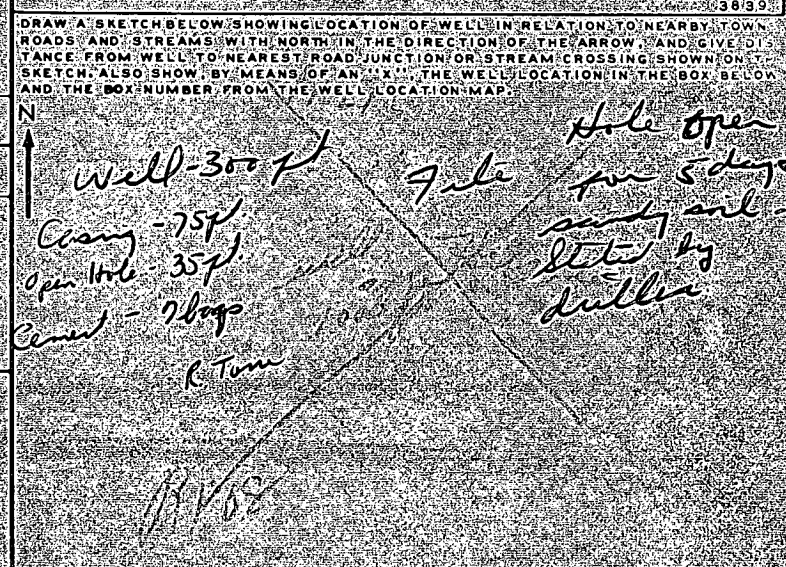 3839
DRAW A SKETCH BELOW SHOWING LOCATION OF WELL IN RELATION TO NEARBY TOWN
ROADS AND STREAMS WITH NORTH IN THE DIRECTION OF THE ARROW, AND GIVE DIS
TANCE FROM WELL TO NEAREST ROAD JUNCTION OR STREAM CROSSING SHOWN ON
SKETCH. ALSO SHOW, BY MEANS OF AN "X", THE WELL LOCATION IN THE BOX BELOW
AND THE BOX NUMBER FROM THE WELL LOCATION MAP.
N
Well - 300 ft
Casing - 75 ft.
Open Hole - 35 ft.
Cement - 7 bags
R. Tome
File
Hole open
for 5 days
sandy soil -
Stated by
driller